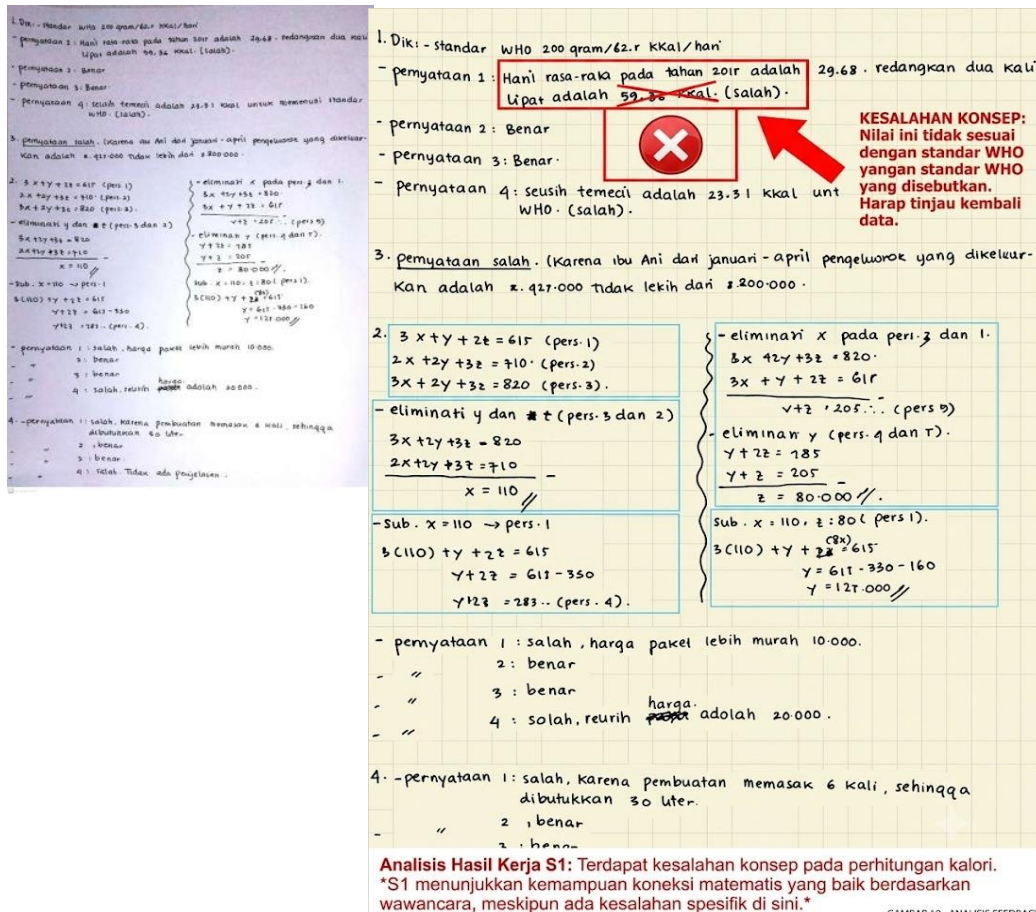 1. Dik: - standar WHO 200 gram/62.5 kkal/hari
- pernyataan 1 : Hasil rata-rata pada tahun 2015 adalah 29.68. sedangkan dua kali
lipat adalah 59,36 kkal. (salah).
- pernyataan 2 : Benar
- pernyataan 3 : Benar
- pernyataan 4 : selisih temecil adalah 23.31 kkal untuk memenuhi standar
WHO. (salah).
3. pernyataan salah. (Karena ibu Ani dari januari - april pengeluaran yang dikeluar-
kan adalah 2.927.000 tidak lebih dari 3.200.000.
2. 3x + y + 2z = 615 (pers 1)
2x + 2y + 3z = 710 (pers 2)
3x + 2y + 3z = 820 (pers 3).
- eliminasi y dan z (pers.3 dan 2)
3x + 2y + 3z = 820
2x + 2y + 3z = 710
x = 110 //
- sub. x = 110 → pers. 1
3(110) + y + 2z = 615
y + 2z = 615 - 330
y + 2z = 285 .. (pers. 4).
- eliminasi x pada pers.3 dan 1.
3x + 2y + 3z = 820
3x + y + 2z = 615
y + z = 205 .. (pers 5)
- eliminasi y (pers. 4 dan 5).
y + 2z = 285
y + z = 205
z = 80.000 //.
sub. x = 110, z : 80 ( pers 1).
3(110) + y + 2z = 615
y = 615 - 330 - 160
y = 125.000 //
- pernyataan 1 : salah, harga paket lebih murah 10.000.
- " 2 : benar
- " 3 : benar
- " 4 : salah, selisih harga adalah 20.000.
4. - pernyataan 1 : salah, karena pembuatan memasak 6 kali, sehingga
dibutuhkan 30 liter.
- " 2 : benar
- " 3 : benar
- " 4 : salah. Tidak ada penjelasan.
1. Dik: - standar WHO 200 gram/62.r kkal/hari
- pernyataan 1 : Hani rasa-raka pada tahun 201r adalah 29.68. redangkan dua kali
lipat adalah 59.36 kkal. (salah).
- pernyataan 2 : Benar
- pernyataan 3 : Benar.
- pernyataan 4 : seusih temecil adalah 23.31 kkal unt
WHO. (salah).
KESALAHAN KONSEP:
Nilai ini tidak sesuai
dengan standar WHO
yangan standar WHO
yang disebutkan.
Harap tinjau kembali
data.
3. pemyataan salah. (Karena ibu Ani dari januari - april pengelworok yang dikelwr-
kan adalah 2.927.000 tidak lekih dari 3.200.000.
2. 3x + y + 2t = 615 (pers. 1)
2x + 2y + 3z = 710. (pers. 2)
3x + 2y + 3z = 820 (pers. 3).
- eliminati y dan t (pers. 3 dan 2)
3x + 2y + 3z = 820
2x + 2y + 3z = 710
x = 110 //
- Sub. x = 110 → pers. 1
3(110) + y + 2z = 615
y + 2z = 615 - 330
y + 2z = 283 .. (pers. 4).
- eliminasi x pada peri. 3 dan 1.
3x 42y + 3z = 820.
3x + y + 2z = 61r
v + z = 205 ... (pers 5)
- eliminan y (pers. 4 dan 5).
y + 2z = 785
y + z = 205
z = 80.000 //.
sub. x = 110, z : 80 ( pers 1).
(8x)
3(110) + y + 2z = 615
y = 615 - 330 - 160
y = 125.000 //
- pernyataan 1 : salah, harga paket lebih murah 10.000.
- " 2 : benar
- " 3 : benar
- " 4 : solah, reurih harga. adolah 20.000.
4. - pernyataan 1 : salah, karena pembuatan memasak 6 kali, sehingga
dibutukkan 30 liter.
- " 2 , benar
3 : benar
Analisis Hasil Kerja S1: Terdapat kesalahan konsep pada perhitungan kalori.
*S1 menunjukkan kemampuan koneksi matematis yang baik berdasarkan
wawancara, meskipun ada kesalahan spesifik di sini.*